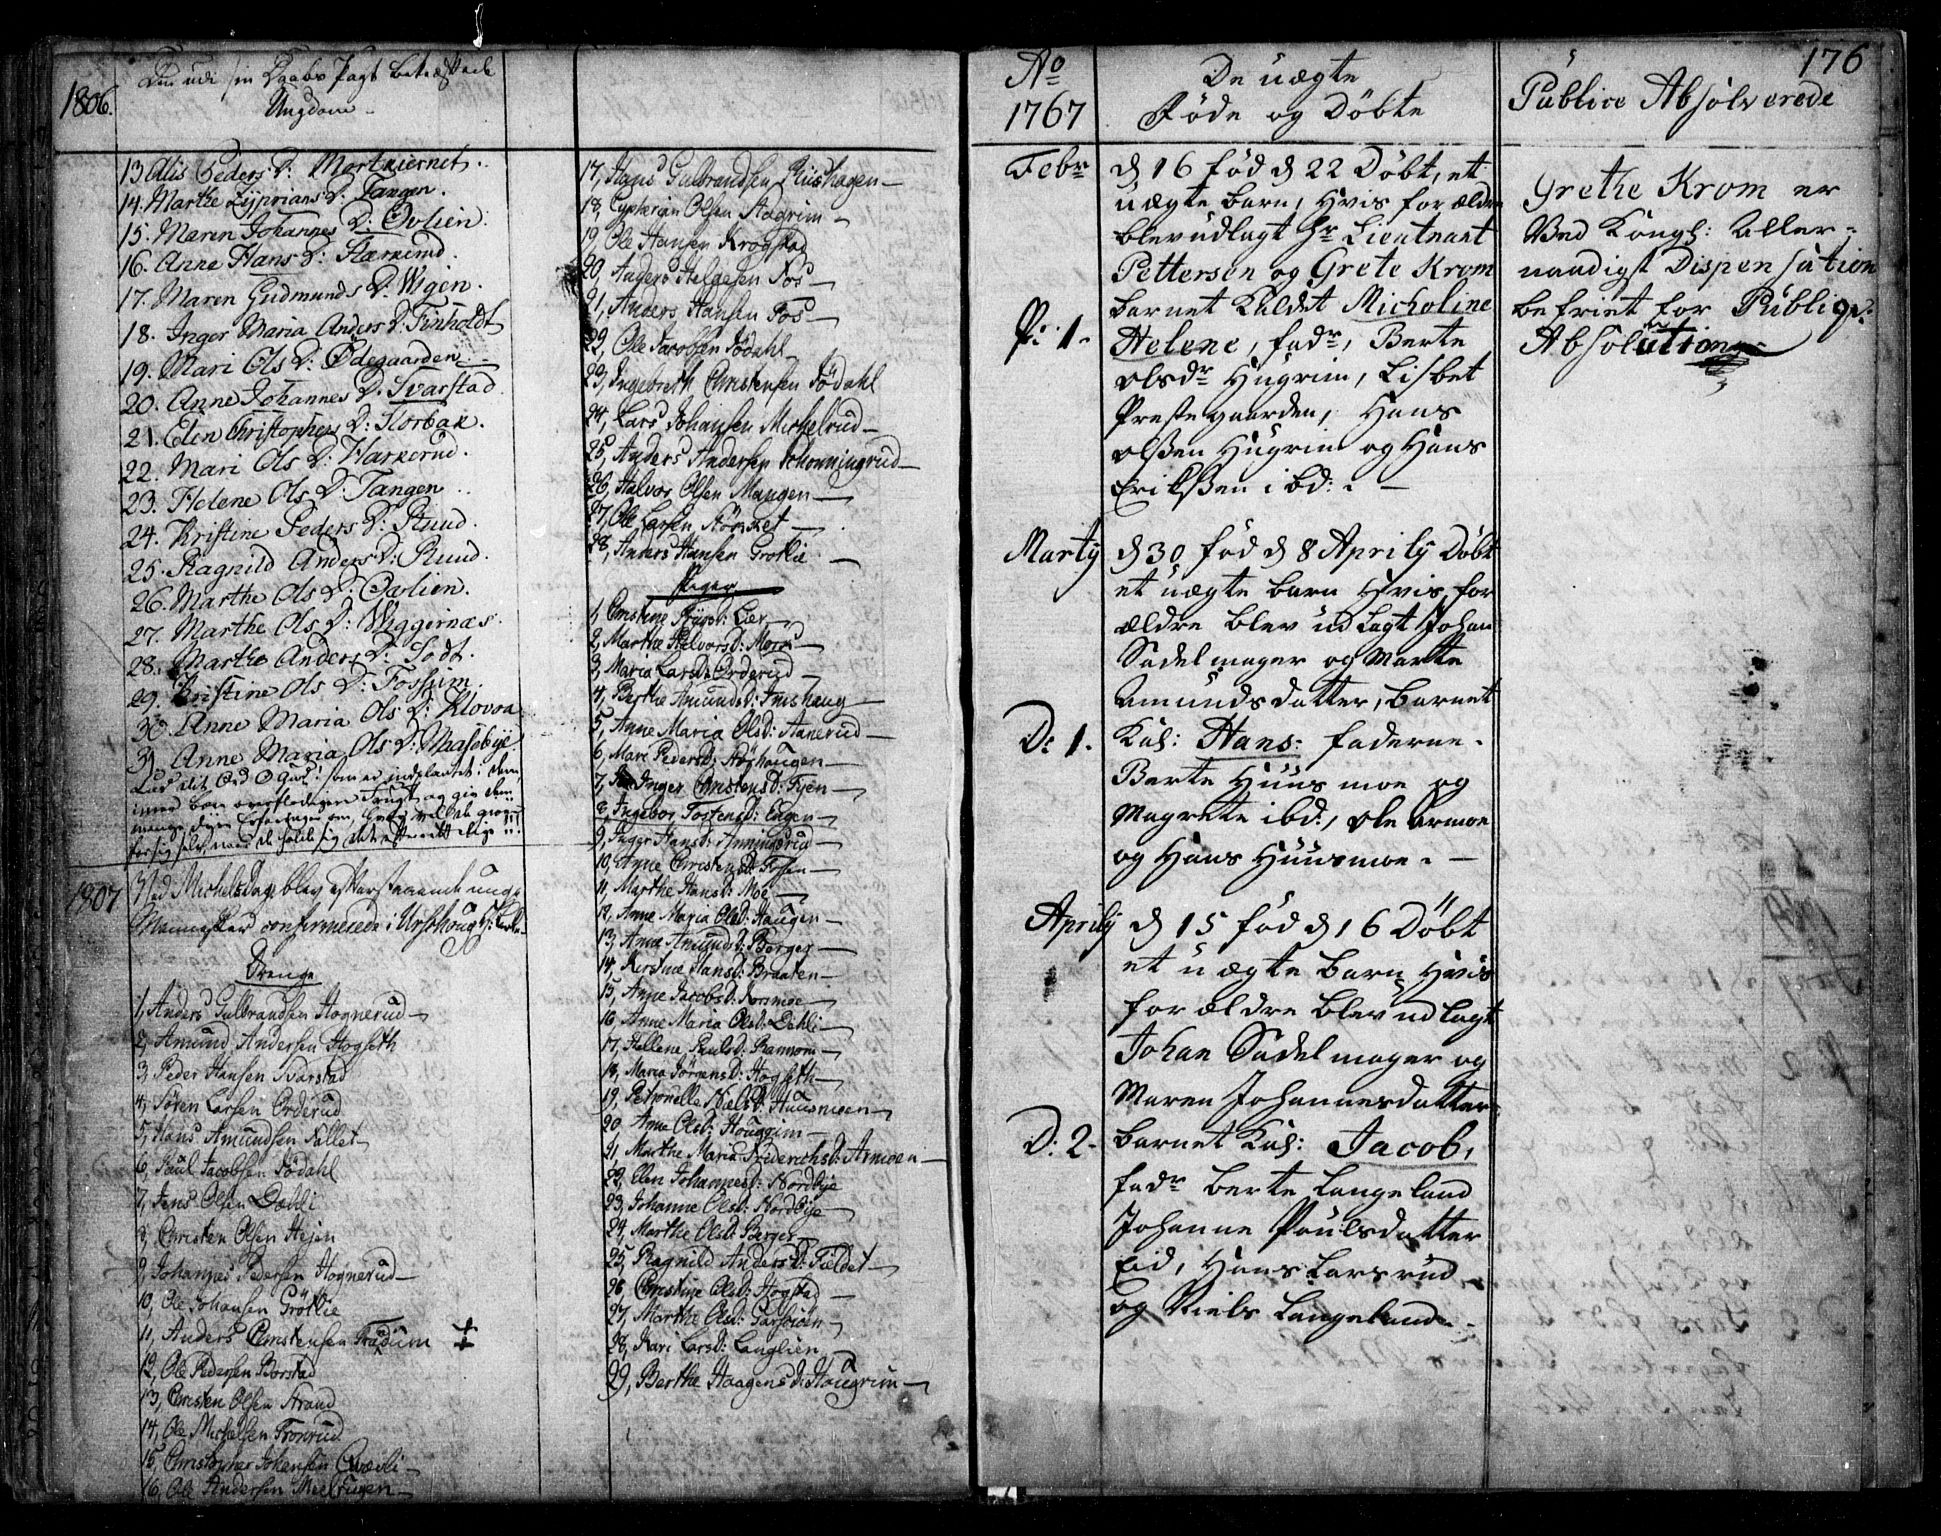 1806.
Den udi sin Daabs Pagt bekræftede
Ungdom -
13 Alis Peders D: Mortkiernet..
14. Marthe Zyprians D: Tangen.
15. Maren Johannes D: Ovlien:
16. Anne Hans D: Harkerud.
17. Maren Gudmunds D: Wigen.
18. Inger Maria Anders D: Finholdt
19. Mari Ols D: Ødegaarden
20. Anne Johannes D: Svarstad
21. Elen Christophers D: Korbak.
22. Mari Ols D: Harkerud.
23. Helene Ols D: Tangen..
24. Kristine Peders D: Ruud.
25. Ragnild Anders D: Ruud.
26. Marthe Ols D: Ovlien.
27. Marthe Ols D: Wiggernæs.
28. Marthe Anders D: Sodt.
29. Kristine Ols D: Fossum.
30. Anne Maria Ols D: Klovoa
31. Anne Maria Ols D: Masebye.
Lad dit Ord O Gud! som er indplantet i dem,
bære overflødigen Frugt og giv dem
1807
Ved Michelsdag blev efterstaaende unge
Mennesker confirmerede i Urskoug H: Kirke.
Drenge
1, Anders Gulbrandsen Hognerud
2, Amund Andersen Hogseth
3, Peder Hansen Svarstad
4, Søren Larsen Orderud
5, Hans Amundsen Fallet
6, Paul Jacobsen Sødahl
7, Jens Olsen Dæhli
8, Christen Olsen Hejen
9, Johannes Pedersen Hognerud
10, Ole Johansen Grøtlie
11, Anders Christensen Tradium
12, Ole Pedersen Borstad
13, Christen Olsen Strand
14, Ole Michelsen Tronrud
15, Christopher Johansen Qvævli
16, Ole Andersen Mælsugen
17, Hans Gulbrandsen Riishagen
18, Cypherian Olsen Haagrim
19, Ole Hansen Krogstad
20, Anders Helgesen Fos
21, Anders Hansen Fos
22, Ole Jacobsen Sødahl
23, Ingebreth Christensen Sødahl
24, Lars Johansen Michelrud
25, Anders Andersen Schonningrud
26, Halvor Olsen Mangen
27, Ole Larsen
28, Anders Hansen Grotlie
Piger
1, Christine Trygsd: Lier
2, Marthe Halvorsd: Moen
3, Maria Larsd: Orderud
4, Berthe Amundsd: Friishaug
5, Anne Maria Olsd: Aanerud
6, Mari Pedersd: Høshaugen
7, Inger Christensd: Tyen
8, Ingebor Tostensd: Engen
9, Inger Hansd: Anningsrud
10, Anne Christensd: Fossen
11, Marthe Hansd: Moe
12, Anne Maria Olsd: Haugen
13, Anne Amundsd: Berger
14, Kerstine Hansd: Braaten
15, Anne Jacobsd: Korsmoe
16, Anne Maria Olsd: Dæhli
17, Hellene Paulsd: Ramsom
18, Maria Jørgensd: Hogseth
19, Petronelle Nielsd: Huusmoen
20, Anne Olsd: Hougrim
21, Marthe Maria Friderichsd: Armoen
22, Elen Johannesd: Nordbye
23, Johanne Olsd: Nordbye
24, Marthe Olsd: Berger
25, Ragnild Andersd: Fieldet
26, Christine Olsd: Hogstad
27, Marthe Olsd: Garsvigen
28, Kari Larsd: Langlien
29, Berthe Haagensd: Hougrim
176
No
1767
De uægte
Føde og Døbte
Publice Absolverede
Febr
d 16 fød d 22 Døbt, et
uægte barn, Hvis forældre
blev udlagt Hr Lieutnant
Pettersen og Grete Krom
barnet Kaldet Micholine
P: 1.
Helene, fadr, Berte
olsdr Hugrim, Lisbet
Prestegaarden, Hans
olssen Hugrim og Hans
Erikssen ibd:.
Grethe Krom er
Ved Kongl: Aller-
naadigst Dispensation
befriet for Publiqe.
Absolution
Martij
d 30 fød d 8 Aprily Døbt
et uægte barn Hvis for
ældre blev udlagt Johan
Sadelmager og Marte
Amundsdatter, barnet
D: 1.
Kal: Hans: faderne.
Berte Huusmoe og
Magrete ibd:, ole armoe
og Hans Huusmoe.
Aprily
d 15 fød d 16 Døbt
et uægte barn Hvis
forældre blev udlagt
Johan Sadelmager og
Maren Johannesdatter
D: 2.
barnet Kal: Jacob,
fadr berte Langeland
Johanne Poulsdatter
Eid, Hans Larsrud
og Niels Langeland.